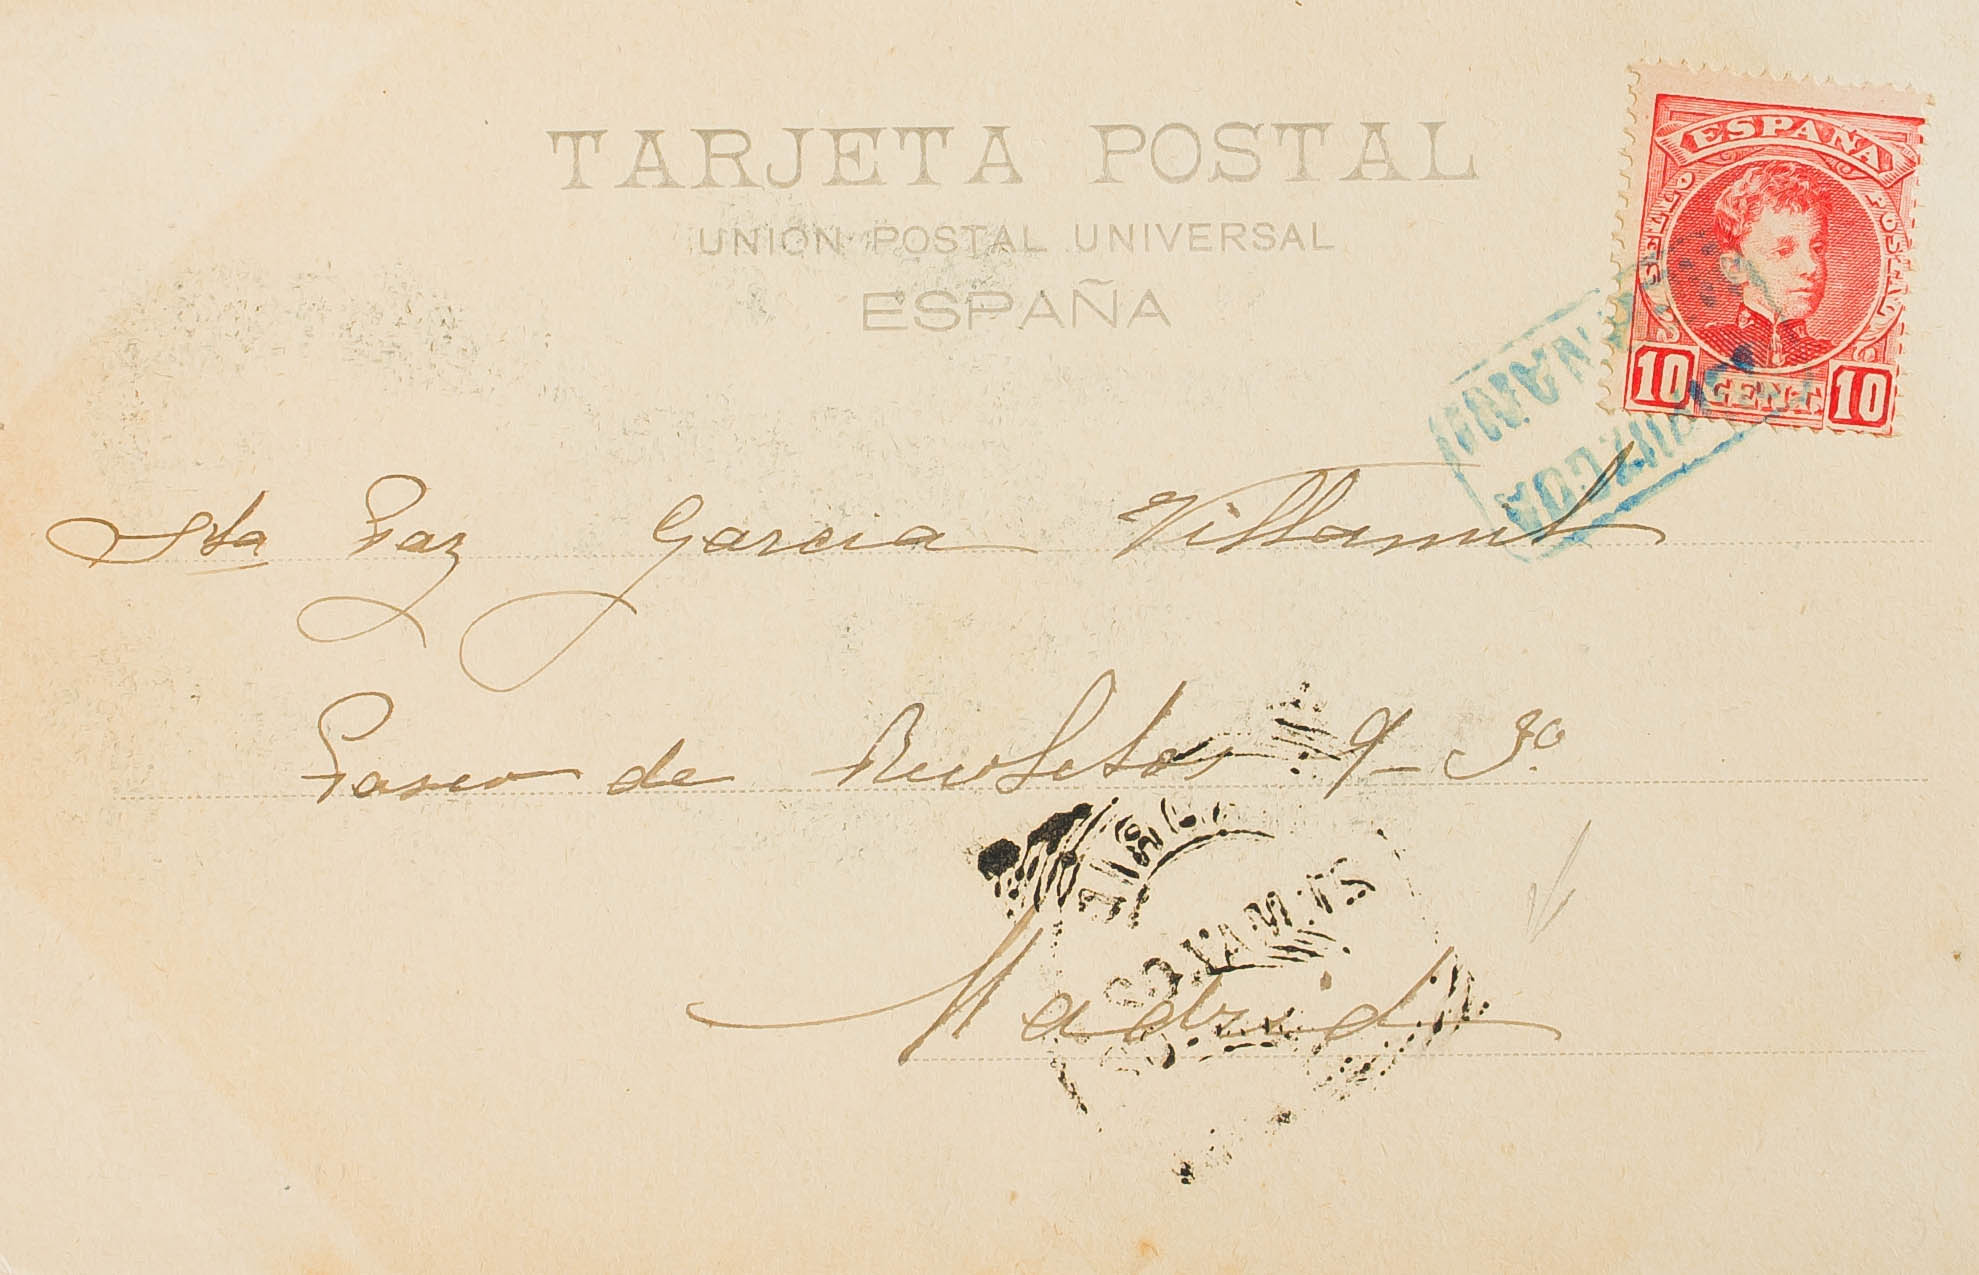 TARJETA POSTAL
UNION POSTAL UNIVERSAL
ESPAÑA
ESPAÑA
SELLO POSTAL
10 CENT. 10
Sta Paz Garcia Villamil
Paseo de Recoletos 9-3o.
Madrid